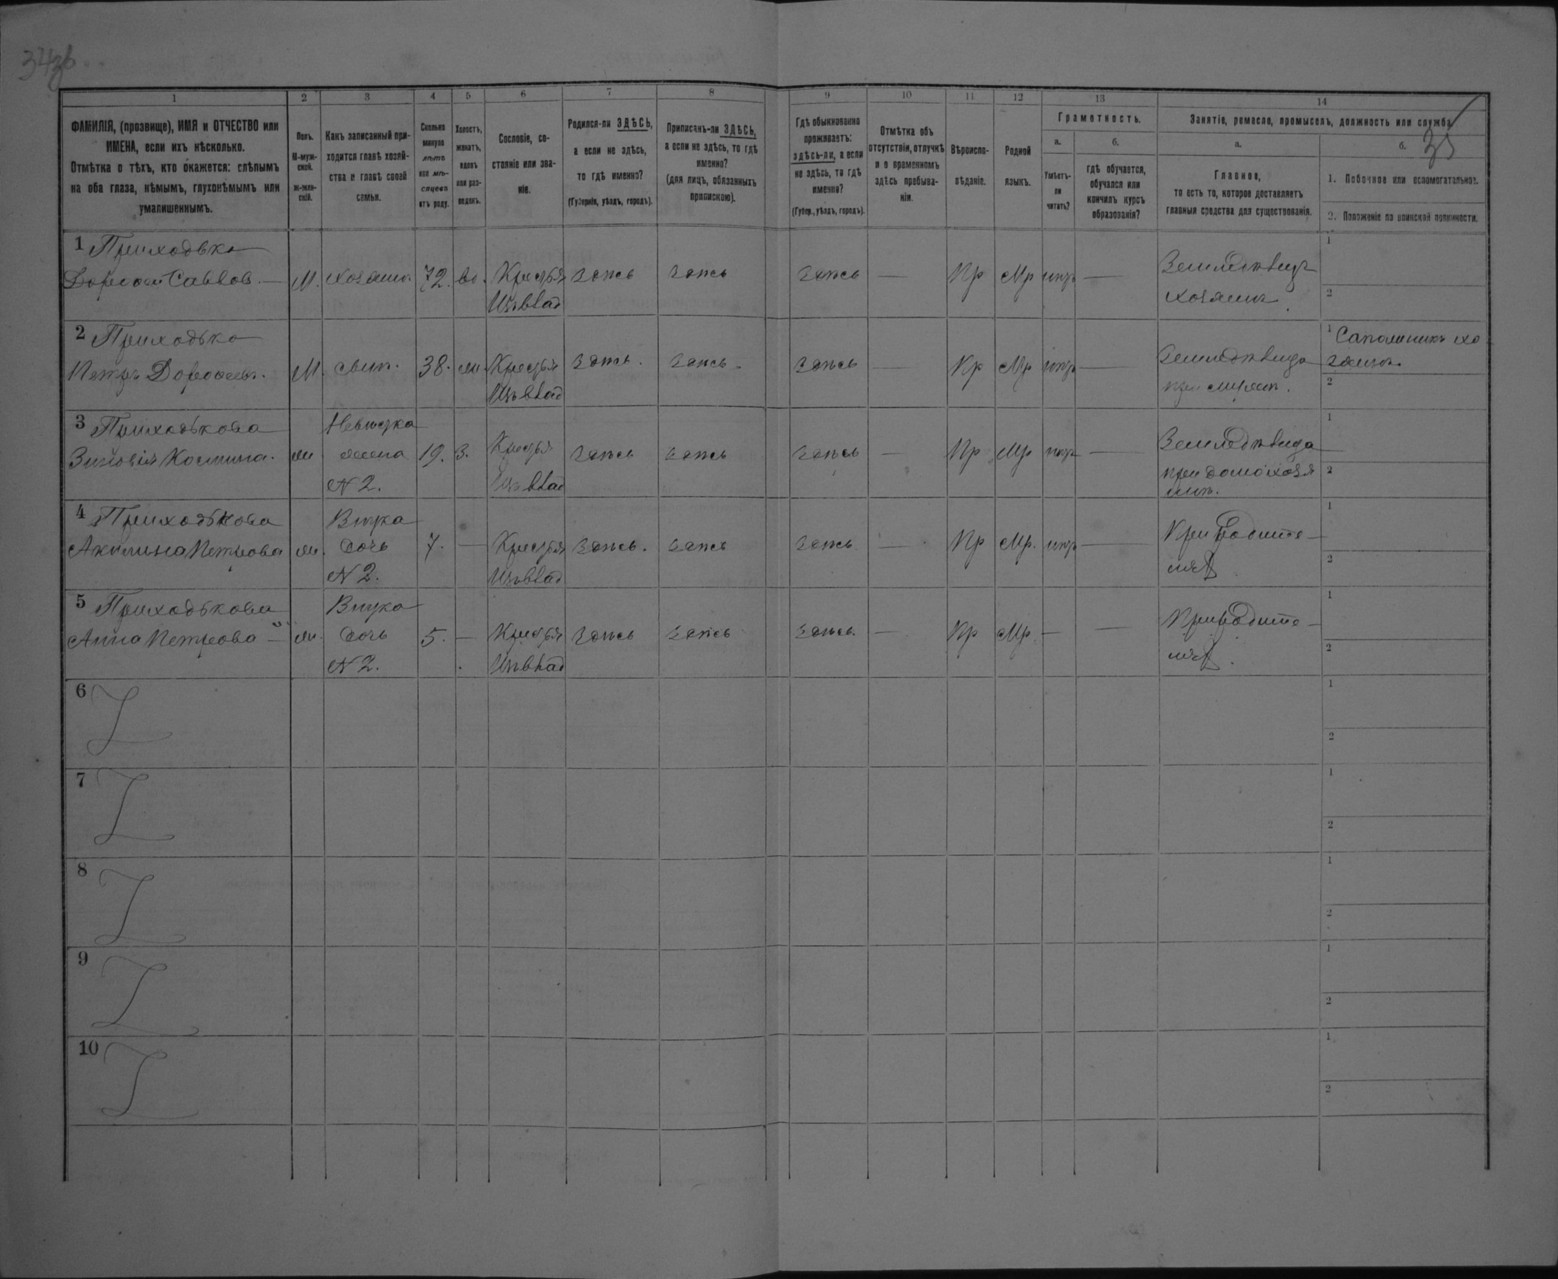 34об
35
1 2 3 4 5 6 7 8 9 10 11 12 13 14
ФАМИЛІЯ, (прозвище), ИМЯ и ОТЧЕСТВО или
ИМЕНА, если ихъ нѣсколько.
Отмѣтка о тѣхъ, кто окажется: слѣпымъ
на оба глаза, нѣмымъ, глухонѣмымъ или
умалишеннымъ.
Полъ.
М-муж-
ской.
Ж-жен-
скій.
Какъ записанный при-
ходится главѣ хозяй-
ства и главѣ своей
семьи.
Сколько
минуло
лѣтъ
или мѣ-
сяцевъ
отъ роду.
Холостъ,
женатъ,
вдовъ
или раз-
веденъ.
Сословіе, со-
стояніе или зва-
ніе.
Родился-ли ЗДѢСЬ,
а если не здѣсь,
то гдѣ именно?
(Губернія, уѣздъ, городъ).
Приписанъ-ли ЗДѢСЬ,
а если не здѣсь, то гдѣ
именно?
(для лицъ, обязанныхъ
припискою).
Гдѣ обыкновенно
проживаетъ:
здѣсь-ли, а если
не здѣсь, то гдѣ
именно?
(Губер., уѣздъ, городъ).
Отмѣтка объ
отсутствіи, отлучкѣ
и о временномъ
здѣсь пребыва-
ніи.
Вѣроиспо-
вѣданіе.
Родной
языкъ.
Грамотность.
а.
Умѣетъ-
ли
читать?
б.
гдѣ обучается,
обучался или
кончилъ курсъ
образованія?
Занятіе, ремесло, промыселъ, должность или служба.
а.
Главное,
то есть то, которое доставляетъ
главныя средства для существованія.
б.
1. Побочное или вспомогательное.
2. Положеніе по воинской повинности.
1 Приходько
Дорофей Саввов. М. хозяинъ 72. вд. Крестья здѣсь здѣсь здѣсь — Пр Мр нѣтъ — Земледѣлецъ
Изъ влад хозяинъ
1
2
2 Приходько
Петръ Дорофеев. М. сынъ. 38. ж. Крестья здѣсь. здѣсь. здѣсь — Пр Мр нѣтъ — Земледѣлецъ
Изъ влад
1 Сапожникъ хо
зяинъ.
2
3 Приходькова Невѣстка
Зиновія Космина. ж жена 19. З. Крестья здѣсь здѣсь здѣсь — Пр Мр нѣтъ — Земледѣлецъ
№ 2. Изъ влад при домохозя
инѣ.
1
2
4 Приходькова Внука
Акилина Петрова ж. дочь 7. — Крестья здѣсь. здѣсь здѣсь — Пр Мр. нѣтъ — При родите-
№ 2. Изъ влад ляхъ
1
2
5 Приходькова Внука
Анна Петрова — ж. дочь 5. — Крестья здѣсь здѣсь здѣсь — Пр Мр. — — При родите-
№ 2. Изъ влад ляхъ.
1
2
6
1
2
7
1
2
8
1
2
9
1
2
10
1
2